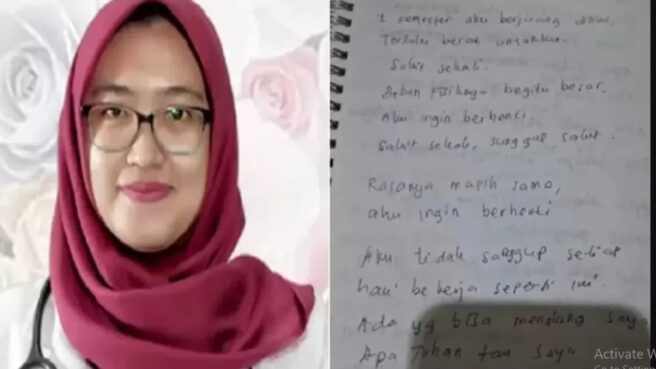 1 semester aku berjuang disini,
Terlalu berat untukku.
Sakit sekali.
Beban fisiknya begitu besar,
Aku ingin berhenti.
Sakit sekali, sungguh sakit.
Rasanya masih sama,
aku ingin berhenti
Aku tidak sanggup setiap
hari bekerja seperti ini.
Ada yg bisa menolong saya
Apa Tuhan tau saya
Activate W